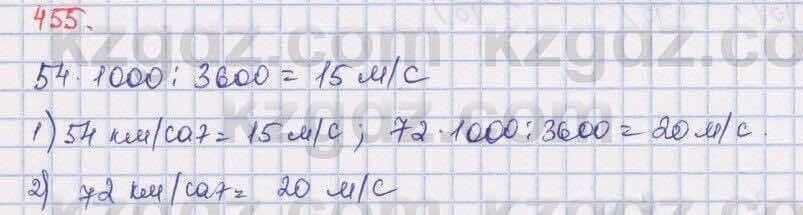 455.
54 · 1000 : 3600 = 15 м/с
1) 54 км/сағ = 15 м/с ; 72 · 1000 : 3600 = 20 м/с.
2) 72 км/сағ = 20 м/с